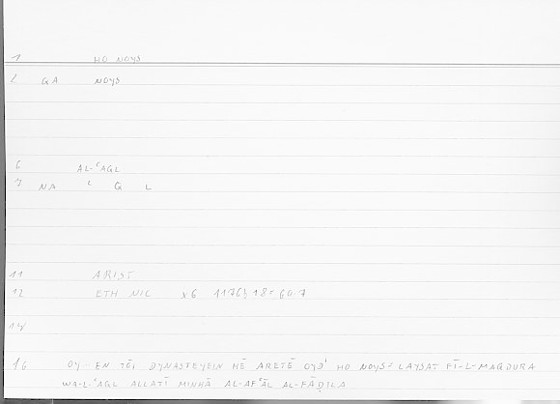 1 HO NOYS
2 GA NOYS
6 AL-ʿAGL
7 NA ʿ G L
11 ARIST
12 ETH NIC X6 1176 18 60.7
14
16 OY EN TĒI DYNASTEYEIN HĒ ARETĒ HO NOYS LAYSAT FĪ-L-MAGDURA
WA-L-ʿAGL ALLATĪ MINHĀ AL-AFʿĀL AL-FĀḌILA